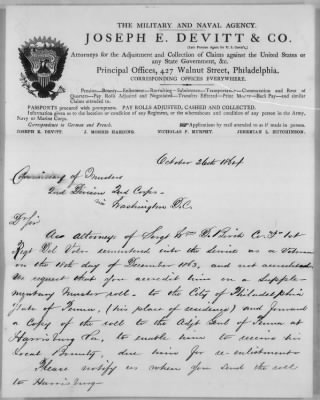 THE MILITARY AND NAVAL AGENCY.
JOSEPH E. DEVITT & CO.
(Late Pension Agent for U. S. Gov't),
Attorneys for the Adjustment and Collection of Claims against the United States or
any State Government, &c.
Principal Offices, 427 Walnut Street, Philadelphia.
CORRESPONDING OFFICES EVERYWHERE.
Pensions—Bounty—Enlistment—Recruiting—Subsistence—Transportation—Construction and Rent of
Quarters—Pay Rolls Adjusted and Negotiated—Transfers Effected—Prize Money—Back Pay—and similar
Claims attended to.
PASSPORTS procured with promptness. PAY ROLLS ADJUSTED, CASHED AND COLLECTED.
Information given as to the location or condition of any Regiment, or the whereabouts and condition of any person in the Army,
Navy or Marine Corps.
Correspondence in German and French. Applications by mail attended to as if made in person.
JOSEPH E. DEVITT. J. MORRIS HARDING. NICHOLAS P. MURPHY. JEREMIAH L. HUTCHINSON.
October 26th 1864
Commissary of Musters
2nd Division 2nd Corps
Washington D.C.
D Sir
As attorney of Sergt Wm Birch Co. 1st
Regt Del Vols remustered into the Service as a Veteran
on the 18th day of December 1863, and not
We request that you accredit him on a Supple-
mentary Muster roll to the City of Philadelphia
State of Penna, (his place of residence) and forward
a Copy of the roll to the Adjt Genl of Penna at
Harrisburg Pa, to enable him to receive his
Local Bounty due him for re-enlistment
Please notify us when you send the roll
to Harrisburg